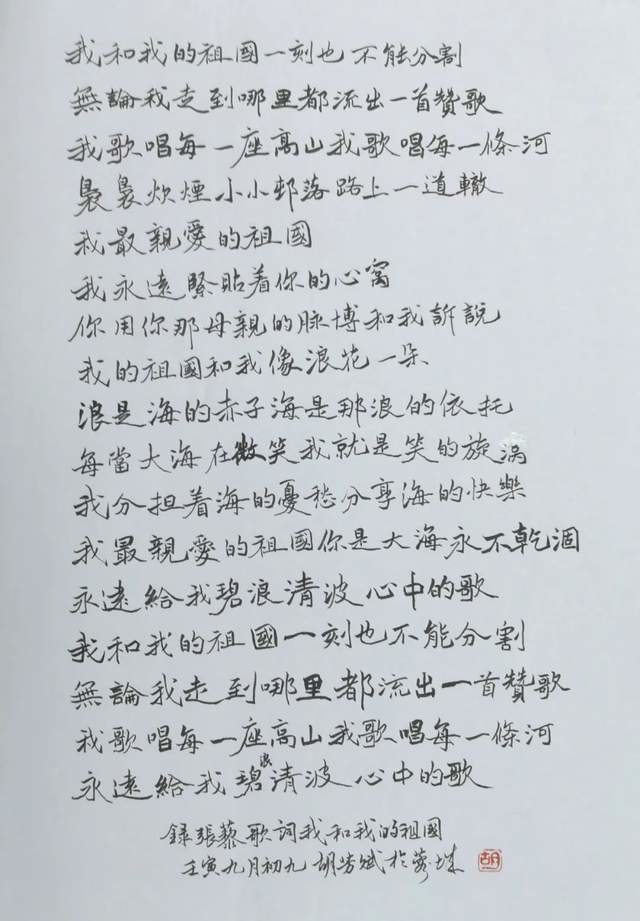 我和我的祖國一刻也不能分割
無論我走到哪里都流出一首贊歌
我歌唱每一座高山我歌唱每一條河
裊裊炊煙小小邨落路上一道轍
我最親愛的祖國
我永遠緊貼着你的心窩
你用你那母親的脉博和我訴說
我的祖國和我像浪花一朵
浪是海的赤子海是那浪的依托
每當大海在微笑我就是笑的旋渦
我分担着海的憂愁分享海的快樂
我最親愛的祖國你是大海永不乾涸
永遠給我碧浪清波心中的歌
我和我的祖國一刻也不能分割
無論我走到哪里都流出一首贊歌
我歌唱每一座高山我歌唱每一條河
永遠給我碧浪清波心中的歌
錄張藜歌詞我和我的祖國
壬寅九月初九胡芳斌於
胡